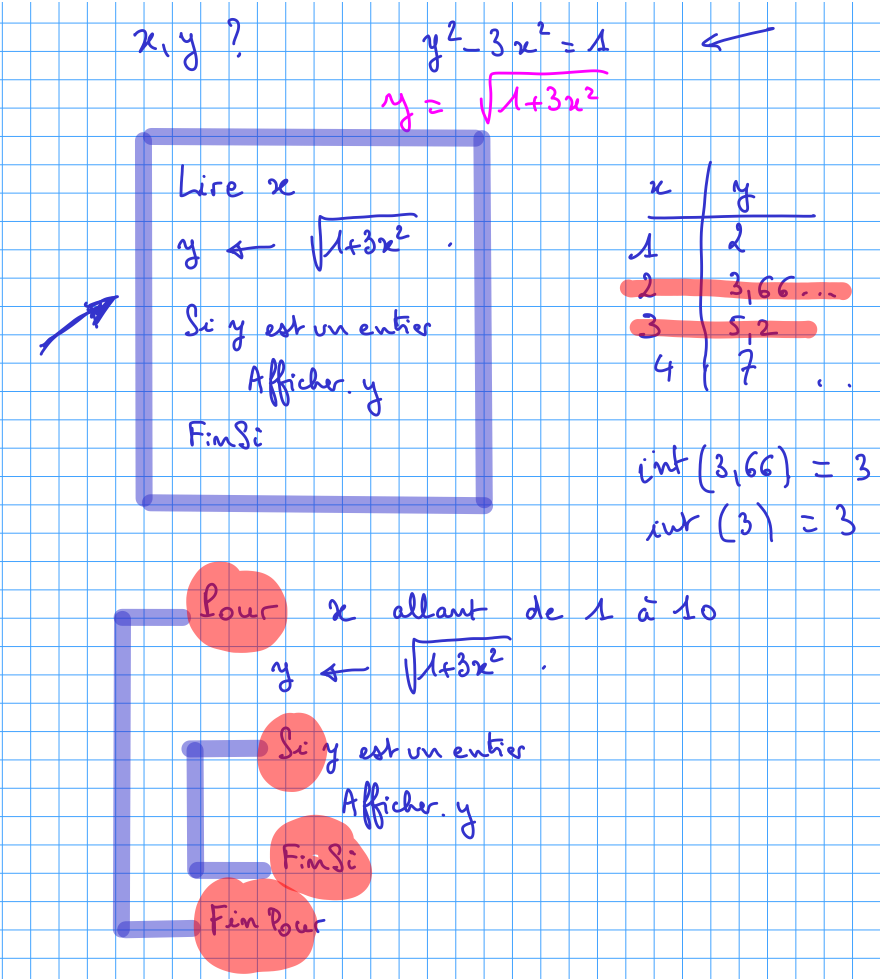 x, y ? y² - 3x² = 1 ←
y = √(1+3x²)
Lire x
y ← √(1+3x²) .
Si y est un entier
Afficher. y
FinSi
x y
1 2
2 3,66...
3 5,2
4 7 . .
int (3,66) = 3
int (3) = 3
Pour x allant de 1 à 10
y ← √(1+3x²) .
Si y est un entier
Afficher. y
FinSi
Fin Pour